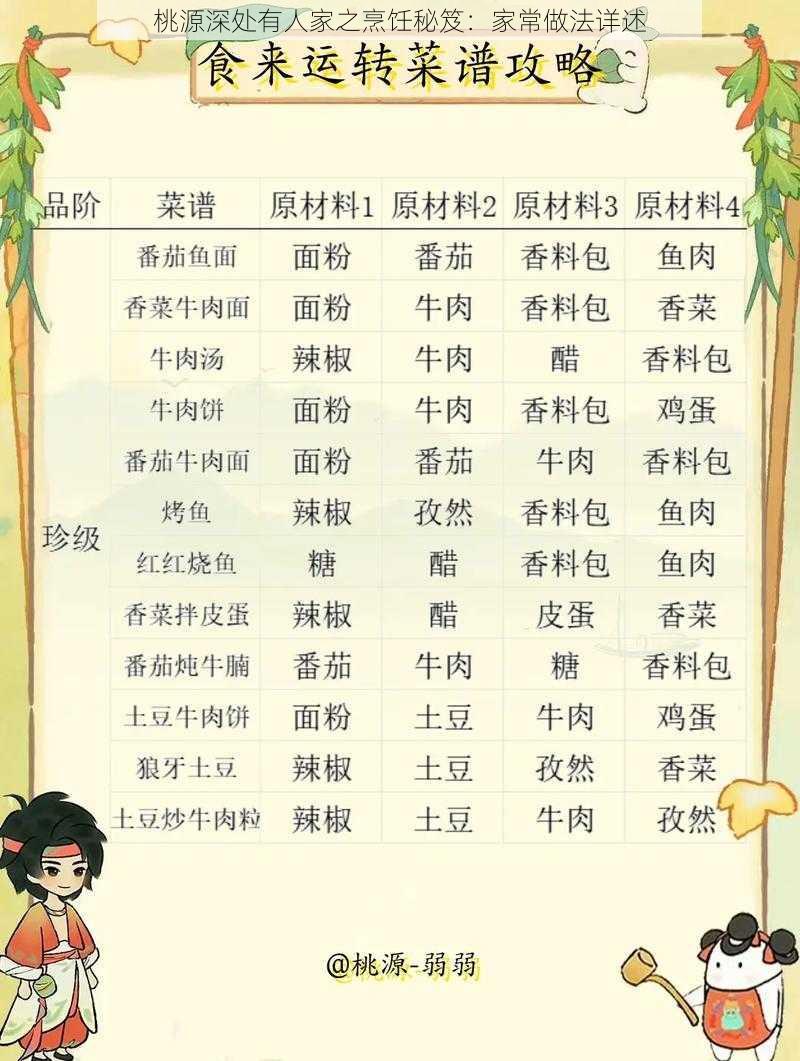 桃源深处有人家之烹饪秘笈：家常做法详述
食来运转菜谱攻略
品阶 菜谱 原材料1 原材料2 原材料3 原材料4
番茄鱼面 面粉 番茄 香料包 鱼肉
香菜牛肉面 面粉 牛肉 香料包 香菜
牛肉汤 辣椒 牛肉 醋 香料包
牛肉饼 面粉 牛肉 香料包 鸡蛋
番茄牛肉面 面粉 番茄 牛肉 香料包
烤鱼 辣椒 孜然 香料包 鱼肉
珍级
红红烧鱼 糖 醋 香料包 鱼肉
香菜拌皮蛋 辣椒 醋 皮蛋 香菜
番茄炖牛腩 番茄 牛肉 糖 香料包
土豆牛肉饼 面粉 土豆 牛肉 鸡蛋
狼牙土豆 辣椒 土豆 孜然 香菜
土豆炒牛肉粒 辣椒 土豆 牛肉 孜然
@桃源-弱弱